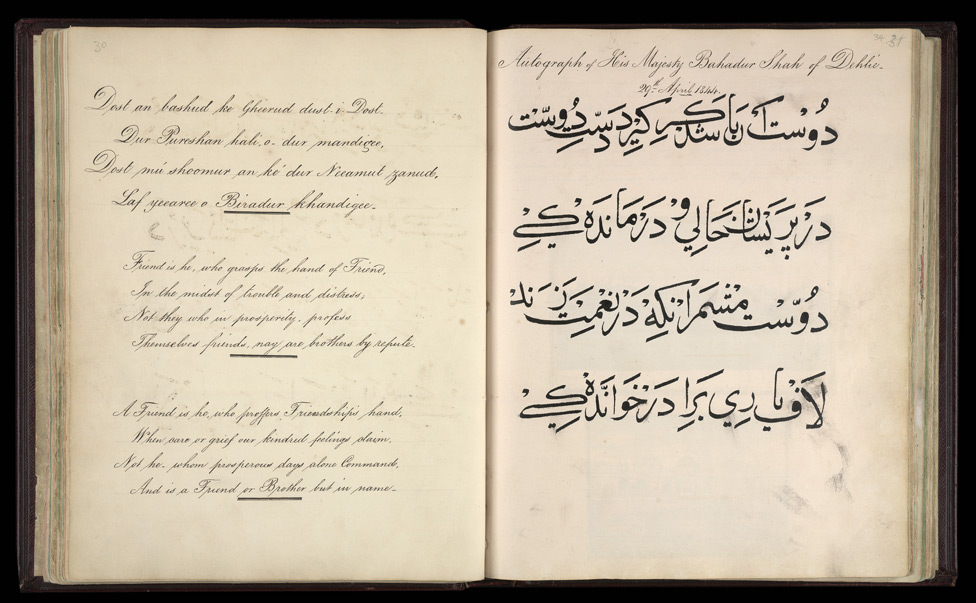 30
Dost an bashud ke Gheerud dust-i-Dost.
Dur Pureshan hali, o- dur mandigee,
Dost mú shoomur an ké dur Neeamut zanud,
Laf yeearee o Biradur khandigee-
Friend is he, who grasps the hand of Friend,
In the midst of trouble and distress,
Not they who in prosperity, profess
Themselves friends, nay are, brothers by repute-
A Friend is he, who proffers Friendship's hand,
When care or grief our kindred feelings claim,
Not he- whom prosperous days alone Command,
And is a Friend or Brother but in name-
31
Autograph of His Majesty Bahadur Shah of Dehlie-
29th April 1844.
دُوست آن باشد کہ گیرد دستِ دُوست
در پریشان حالی و درماندہ کے
دُوست مشمر آنکہ در نعمت زند
لاف یاری برادر خواندہ کے